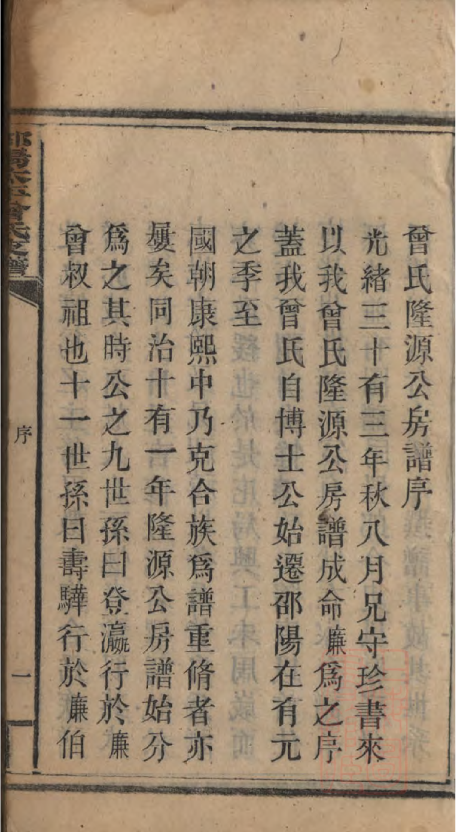 曾氏隆源公房譜序
光緒三十有三年秋八月兄守珍書來
以我曾氏隆源公房譜成命廉爲之序
蓋我曾氏自博士公始遷邵陽在有元
之季至
國朝康熙中乃克合族爲譜重脩者亦
屢矣同治十有一年隆源公房譜始分
爲之其時公之九世孫曰登瀛行於廉
曾叔祖也十一世孫曰壽驊行於廉伯
序
一